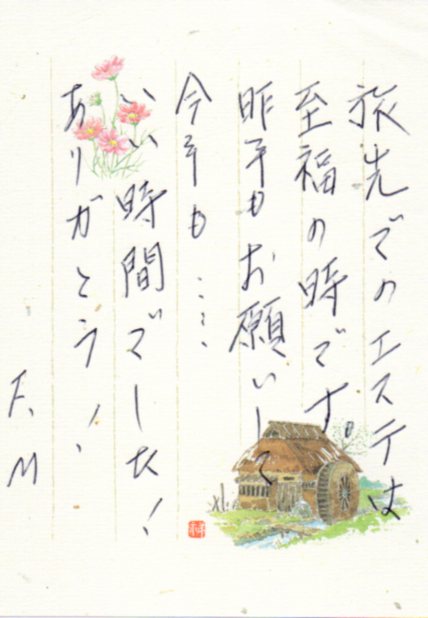 旅先でのエステは
至福の時です。
昨年もお願いして
今年も….
いい時間でした！
ありがとう！、
F.M